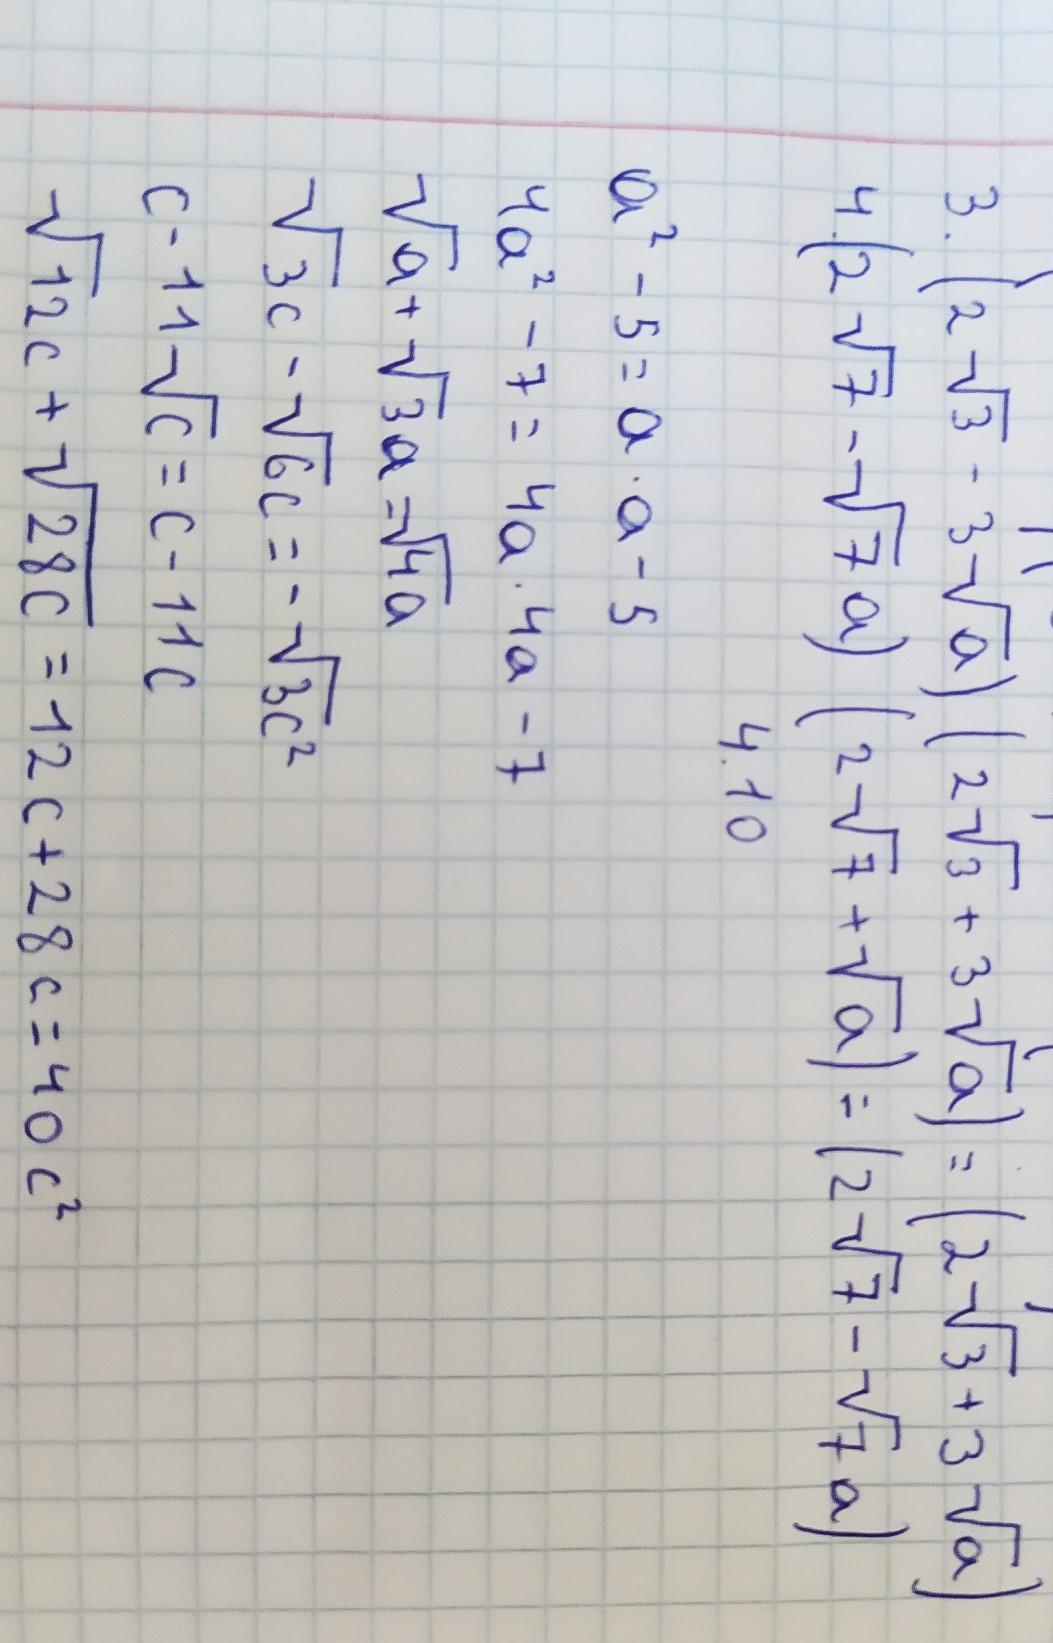 3. (2√3 - 3√a) (2√3 + 3√a) = (2√3 + 3√a)
4. (2√7 - √7a) (2√7 + √a) = (2√7 - √7a)
4.10
a² - 5 = a · a - 5
4a² - 7 = 4a · 4a - 7
√a + √3a = √4a
√3c - √6c = - √3c²
c - 11√c = c - 11c
√12c + √28c = 12c + 28c = 40c²